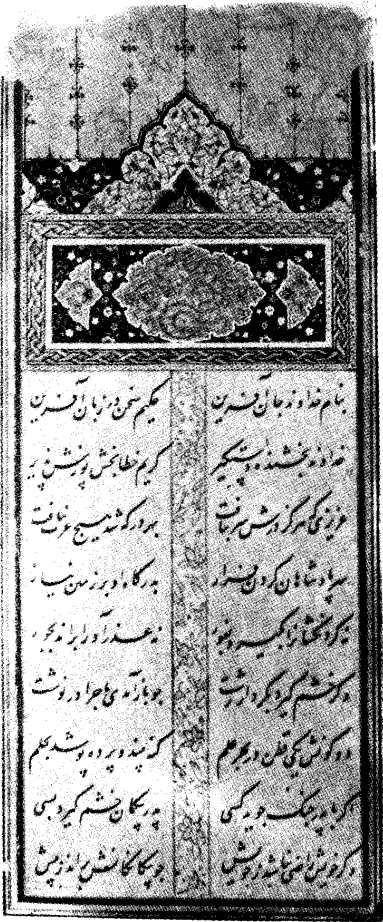 بنام خداوند جان آفرین حکیم سخن در زبان آفرین
خداوند بخشنده دستگیر کریم خطابخش پوزش پذیر
عزیزی که هر کز درش سر بتافت بهر در که شد هیچ عزت نیافت
سر پادشاهان گردن فراز بدرگاه او بر زمین نیاز
نه گردنکشانرا بگیرد بفور نه عذرآورانرا براند بجور
وگر خشم گیرد بکردار زشت چو بازآمدی ماجرا درنوشت
دو کونش یکی قطره در بحر علم گنه بیند و پرده پوشد بحلم
اگر با پدر جنگ جوید کسی پدر بیکمان خشم گیرد بسی
وگر خویش راضی نباشد ز خویش چو بیکانکانش براند ز پیش